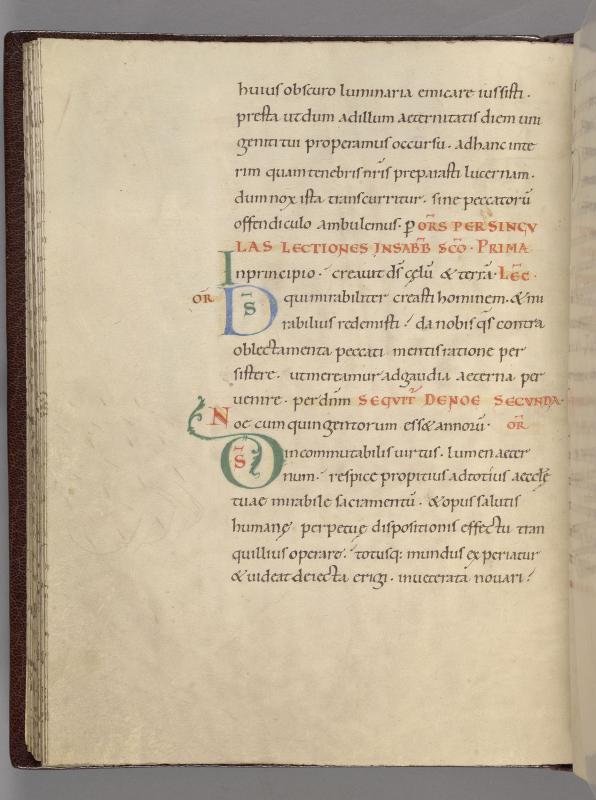 huius obscuro luminaria emicare iussisti.
presta ut dum ad illum aeternitatis diem uni
geniti tui properamus occursu. ad hanc inte
rim quam tenebris nr̄is preparasti lucernam.
dum nox ista transcurritur. sine peccatorū
offendiculo ambulemus. p̄ OR̄S PER SINGV
LAS LECTIONES IN SABB̄ SC̄O. PRIMA
In principio. creauit d̄s cęlū & terrā. LEC̄.
OR̄ D̄S qui mirabiliter creasti hominem. & mi
rabilius redemisti. da nobis q̄s contra
oblectamenta peccati mentis ratione per
sistere. ut mereamur ad gaudia aeterna per
uenire. per dn̄m SEQVIT̄ DE NOE SECVNDA.
Noe cum quingentorum ess& annorū. OR̄
D̄S incommutabilis uirtus. lumen aeter
num. respice propitius ad totius aecclę
tuae mirabile sacramentū. & opus salutis
humanę perpetuę dispositionis effectu tran
quillius operare. totusq: mundus experiatur
& uideat deiecta erigi. inueterata nouari.